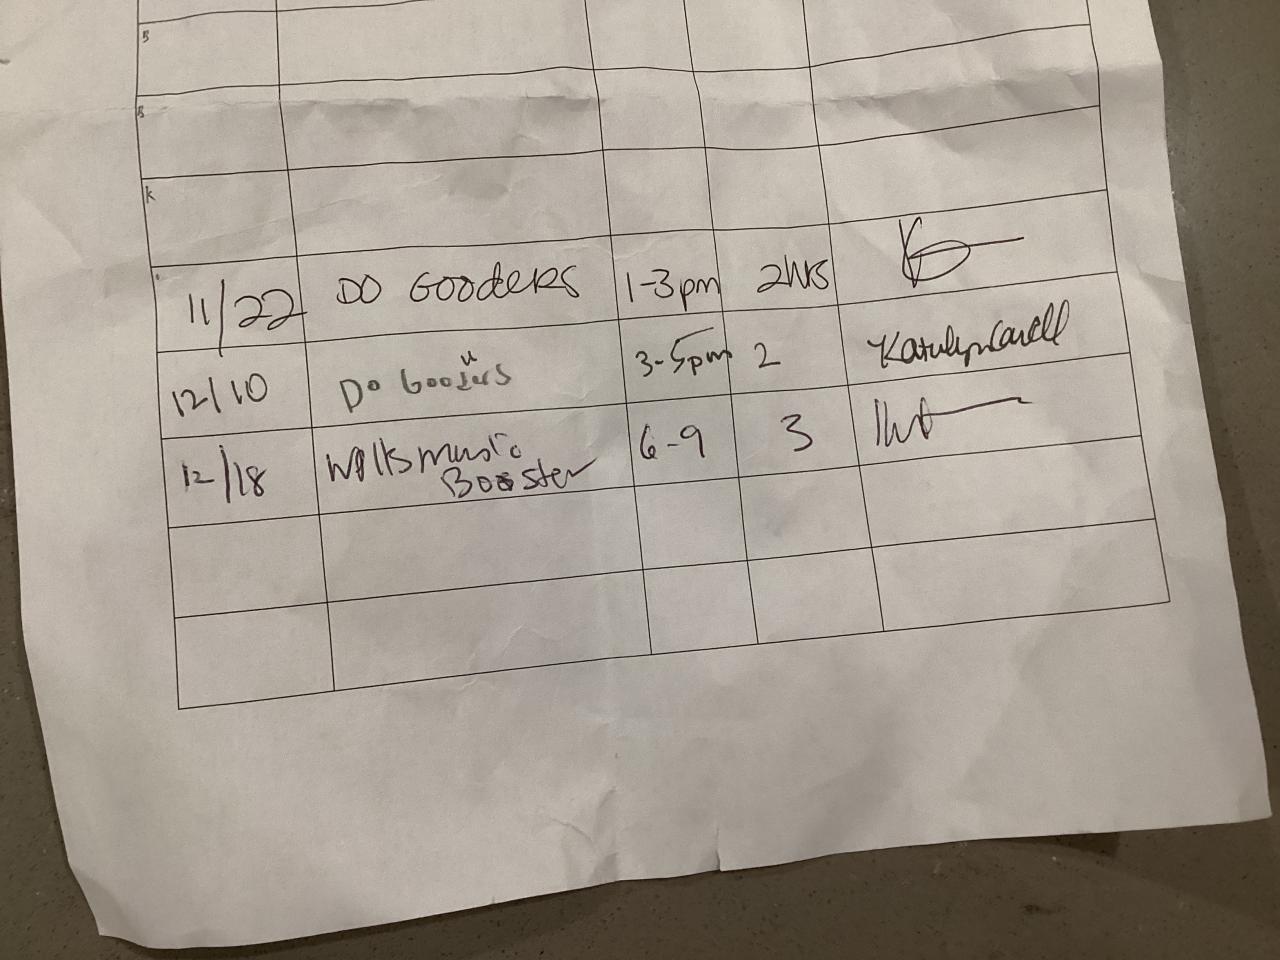 5
5
k
11/22 DO GOODERS 1-3pm 2HRS
12/10 Do Gooders 3-5pm 2
12/18 Wilks music 6-9 3
Booster